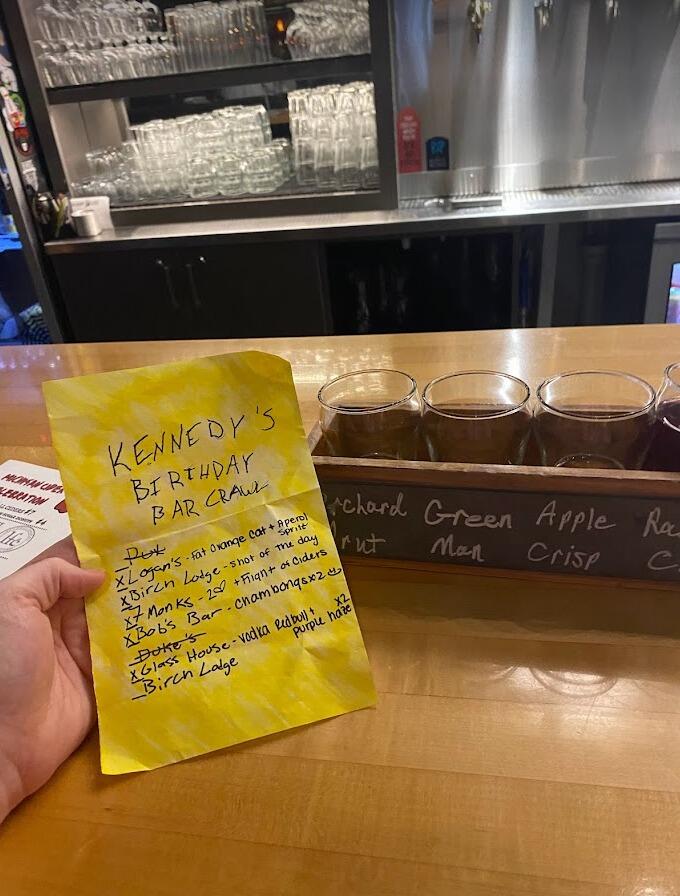 KENNEDY'S
BIRTHDAY
BAR CRAWL
X Logan's - Fat orange cat + Aperol
Spritz
X Birch Lodge - Shot of the day
X 7 Monks - 2♡ + Flight of Ciders
X Bob's Bar - chambongs x2 ☺
Duke's
X Glass House - vodka Redbull +
purple haze x2
_ Birch Lodge
Green Apple
Man Crisp